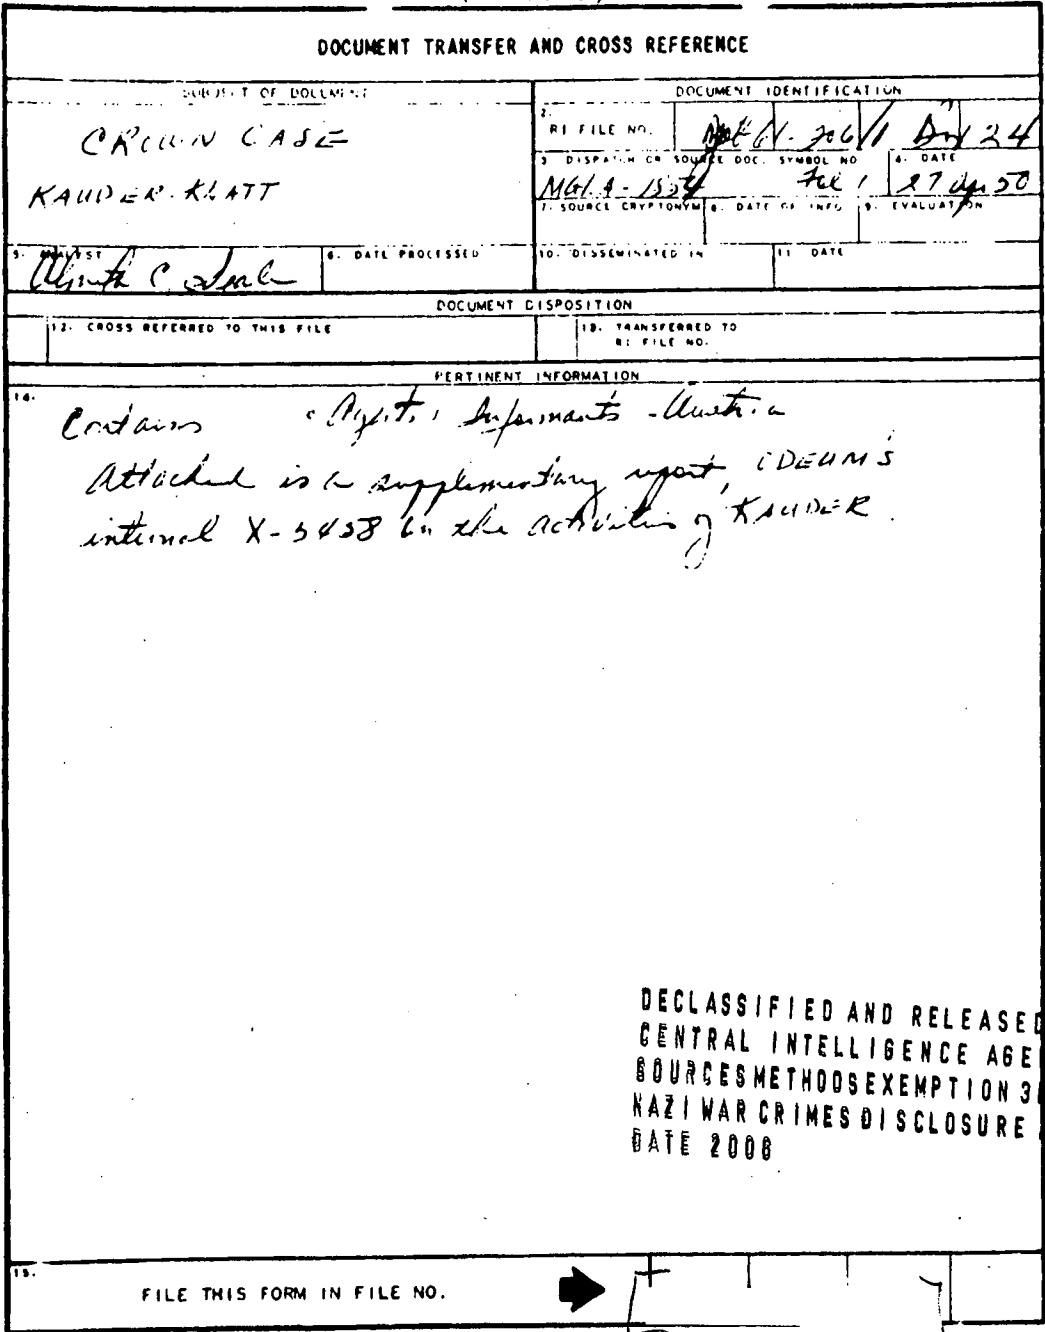 DOCUMENT TRANSFER AND CROSS REFERENCE
SUBJECT OF DOCUMENT
CROWN CASE
KAUDER-KLATT
DOCUMENT IDENTIFICATION
2. RI FILE NO.
206/1 24
3. DISPATCH OR SOURCE DOC. SYMBOL NO
4. DATE
27 Apr 50
7. SOURCE CRYPTONYM
8. DATE OF INFO
9. EVALUATION
5. ANALYST
6. DATE PROCESSED
10. DISSEMINATED IN
11. DATE
DOCUMENT DISPOSITION
12. CROSS REFERRED TO THIS FILE
13. TRANSFERRED TO
RI FILE NO.
PERTINENT INFORMATION
14.
Contains Informants - Austria
Attached is a supplementary report,
internal X-5458 on the activities of KAUDER.
DECLASSIFIED AND RELEASED
CENTRAL INTELLIGENCE AGE
SOURCESMETHODSEXEMPTION 3
NAZI WAR CRIMES DISCLOSURE
DATE 2006
15.
FILE THIS FORM IN FILE NO.